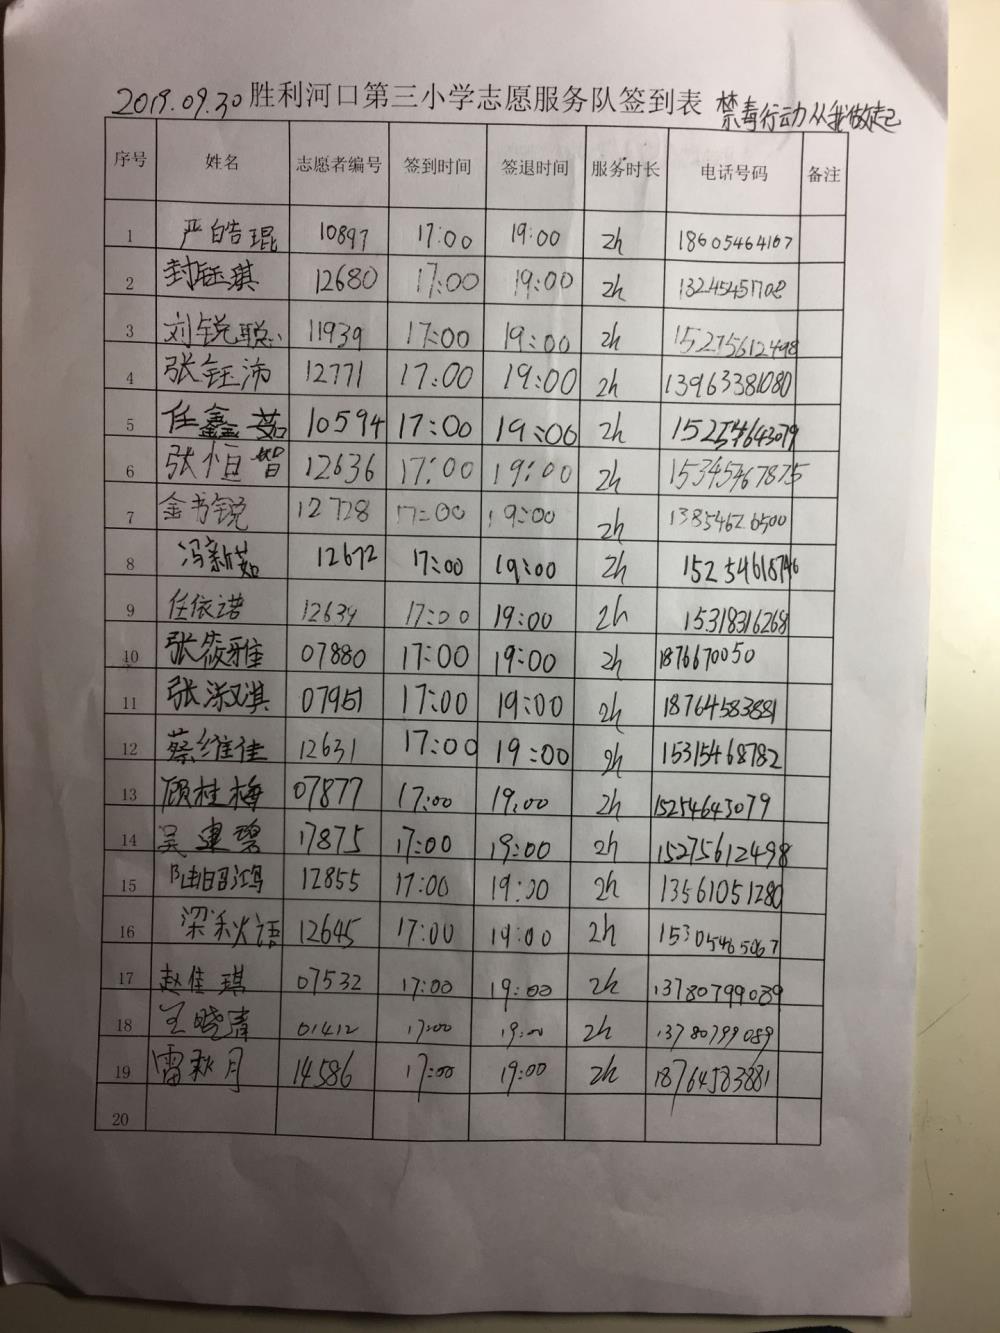 2019.09.30 胜利河口第三小学志愿服务队签到表 禁毒行动从我做起
序号 姓名 志愿者编号 签到时间 签退时间 服务时长 电话号码 备注
1 严皓琨 10897 17:00 19:00 2h 18605464167
2 封钰琪 12680 17:00 19:00 2h
3 刘锐聪 11939 17:00 19:00 2h 15275612498
4 张钰沛 12771 17:00 19:00 2h 13963381080
5 任鑫茹 10594 17:00 19:00 2h 15254643079
6 张恒智 12636 17:00 19:00 2h 15345467875
7 金书锐 12728 17:00 19:00 2h 13854626500
8 冯新茹 12672 17:00 19:00 2h 15254618746
9 任依诺 12639 17:00 19:00 2h 15318316268
10 张筱雅 07880 17:00 19:00 2h 1876670050
11 张淑淇 07951 17:00 19:00 2h 18764583881
12 蔡维佳 12631 17:00 19:00 2h 15315468782
13 顾桂梅 07877 17:00 19:00 2h 15254643079
14 吴建碧 17875 17:00 19:00 2h 15275612498
15 陆昭鸿 12855 17:00 19:00 2h 13561051280
16 梁秋语 12645 17:00 19:00 2h 15305465067
17 赵佳琪 07532 17:00 19:00 2h 13780799089
18 王晓清 01412 17:00 19:00 2h 13780799089
19 雷秋月 14586 17:00 19:00 2h 18764583881
20